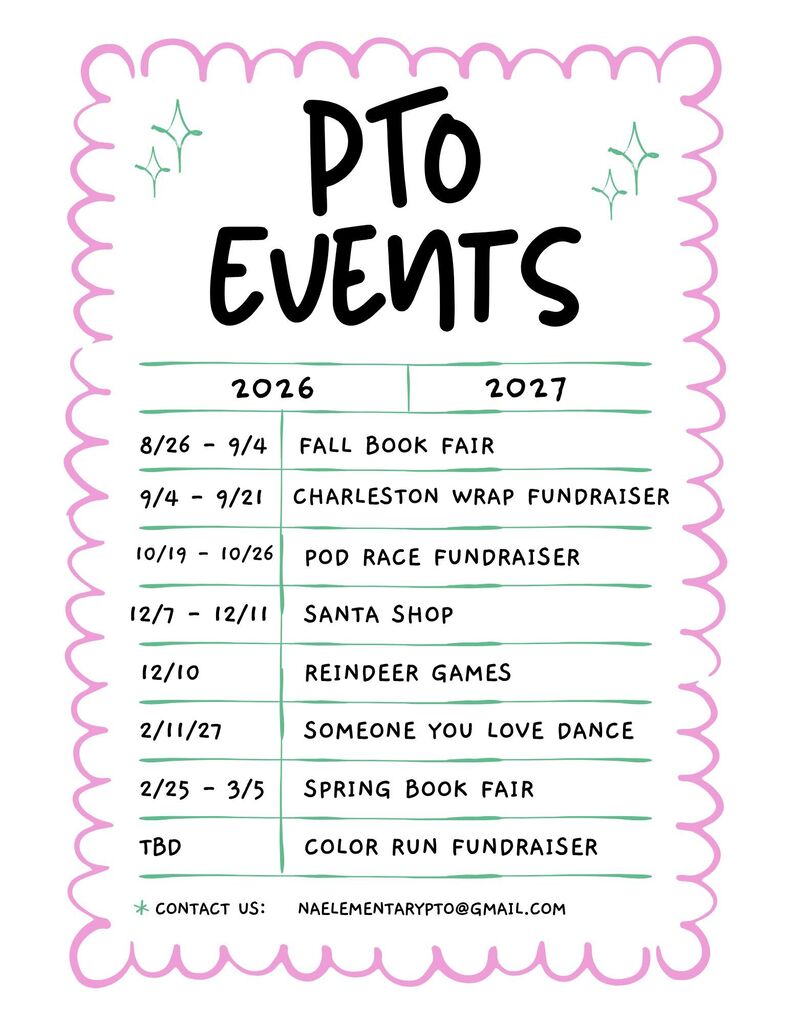 PTO
EVENTS
2026 2027
8/26 - 9/4 FALL BOOK FAIR
9/4 - 9/21 CHARLESTON WRAP FUNDRAISER
10/19 - 10/26 POD RACE FUNDRAISER
12/7 - 12/11 SANTA SHOP
12/10 REINDEER GAMES
2/11/27 SOMEONE YOU LOVE DANCE
2/25 - 3/5 SPRING BOOK FAIR
TBD COLOR RUN FUNDRAISER
* CONTACT US: NAELEMENTARYPTO@GMAIL.COM